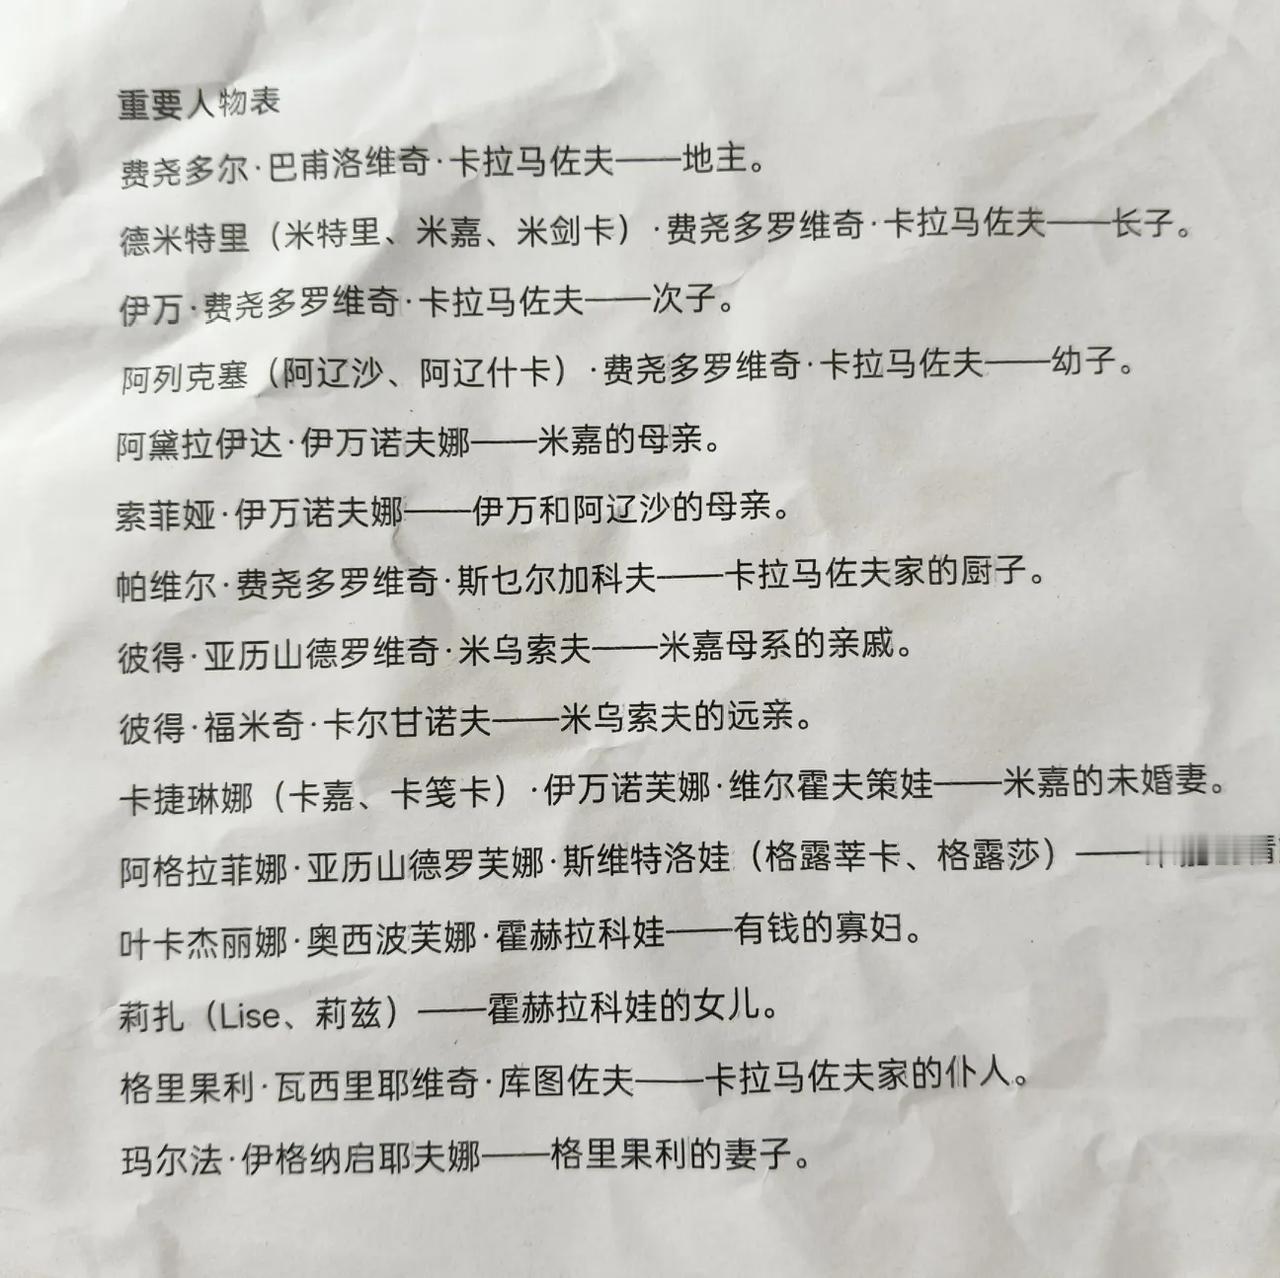 重要人物表
费尧多尔·巴甫洛维奇·卡拉马佐夫——地主。
德米特里（米特里、米嘉、米剑卡）·费尧多罗维奇·卡拉马佐夫——长子。
伊万·费尧多罗维奇·卡拉马佐夫——次子。
阿列克塞（阿辽沙、阿辽什卡）·费尧多罗维奇·卡拉马佐夫——幼子。
阿黛拉伊达·伊万诺夫娜——米嘉的母亲。
索菲娅·伊万诺夫娜——伊万和阿辽沙的母亲。
帕维尔·费尧多罗维奇·斯乜尔加科夫——卡拉马佐夫家的厨子。
彼得·亚历山德罗维奇·米乌索夫——米嘉母系的亲戚。
彼得·福米奇·卡尔甘诺夫——米乌索夫的远亲。
卡捷琳娜（卡嘉、卡笺卡）·伊万诺芙娜·维尔霍夫策娃——米嘉的未婚妻。
阿格拉菲娜·亚历山德罗芙娜·斯维特洛娃（格露莘卡、格露莎）——
叶卡杰丽娜·奥西波芙娜·霍赫拉科娃——有钱的寡妇。
莉扎（Lise、莉兹）——霍赫拉科娃的女儿。
格里果利·瓦西里耶维奇·库图佐夫——卡拉马佐夫家的仆人。
玛尔法·伊格纳启耶夫娜——格里果利的妻子。